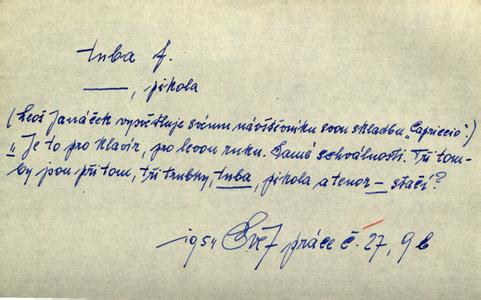 tuba f.
——, pikola
(Leoš Janáček vysvětluje svému návštěvníku svou skladbu „Capriccio":)
„Je to pro klavír, pro levou ruku. Samé schválnosti. Tři tom-
by jsou při tom, tři trubky, tuba, pikola a tenor – stačí?
1954 práce č. 27, 9b